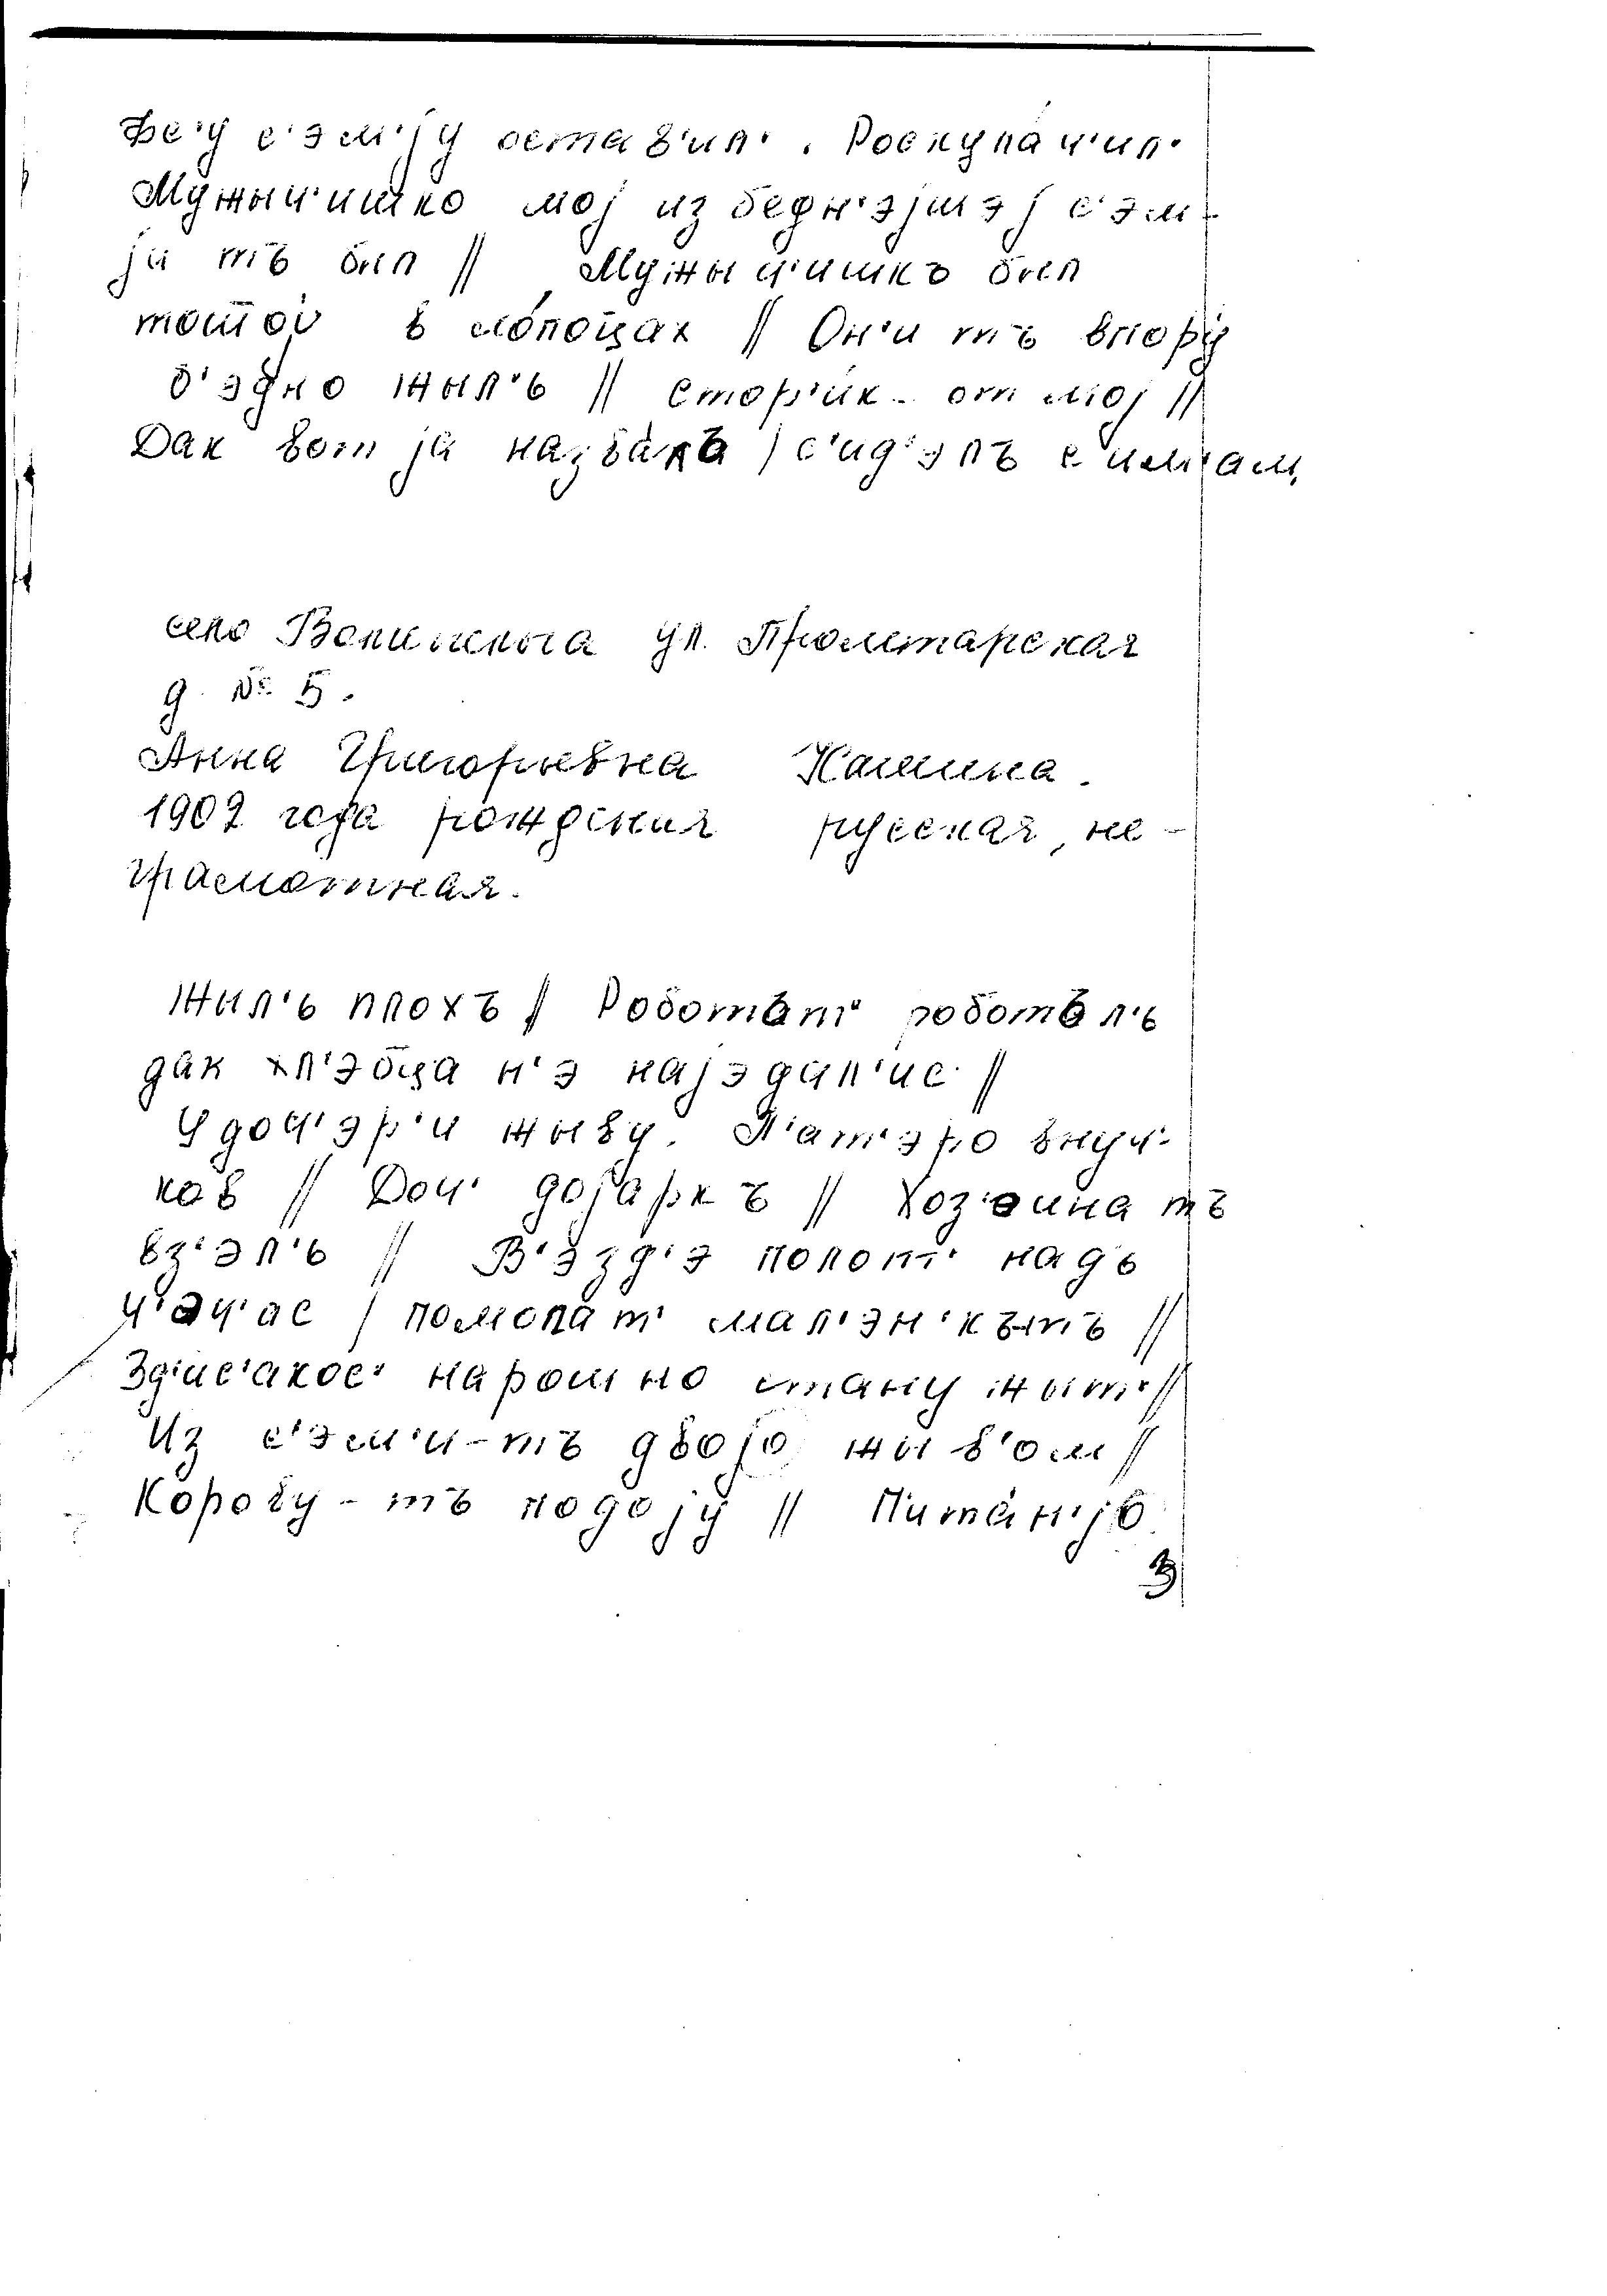 фс'у с'эм'jу остав'ил'. Роскулач'ил'
Мужыч'ишко мој из бедн'эjшэj с'эм-
jи тъ был // Мужыч'ишкъ был
тошой в молоцах // Он'и тъ впору
б'эдно жыл'ь // стор'ик-от мој //
Дак вот jа назвала / с'ид'элъ с'им'ам,
село ул. Пролетарская
д. № 5.
Анна Григорьевна Кашина.
1902 года рождения русская, не-
грамотная.
Жил'ь плохъ // Роботат' роботал'ь
дак хл'эбца н'э наjэдал'ис' //
У доч'эр'и жыву. П'ат'эро внуч'-
ков // Доч' доjаркъ // Хоз'аина тъ
вз'эл'ь // В'эзд'э полот' надъ
ч'ач'ас / помолат' мал'эн'кътъ //
Зд'ис'акос' нарошно стану жыт' //
Из с'эм'и-тъ двоjо жыв'ом //
Корову-тъ подоjу // Питан'jо
3